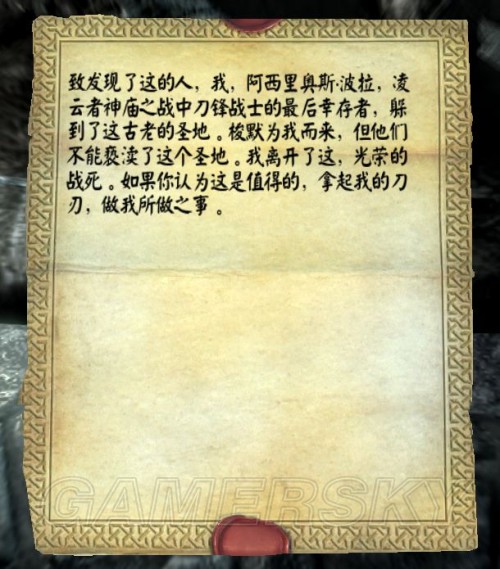 致发现了这的人，我，阿西里奥斯·波拉，凌
云者神庙之战中刀锋战士的最后幸存者，躲
到了这古老的圣地。梭默为我而来，但他们
不能亵渎了这个圣地。我离开了这，光荣的
战死。如果你认为这是值得的，拿起我的刀
刃，做我所做之事。
GAMERSKY